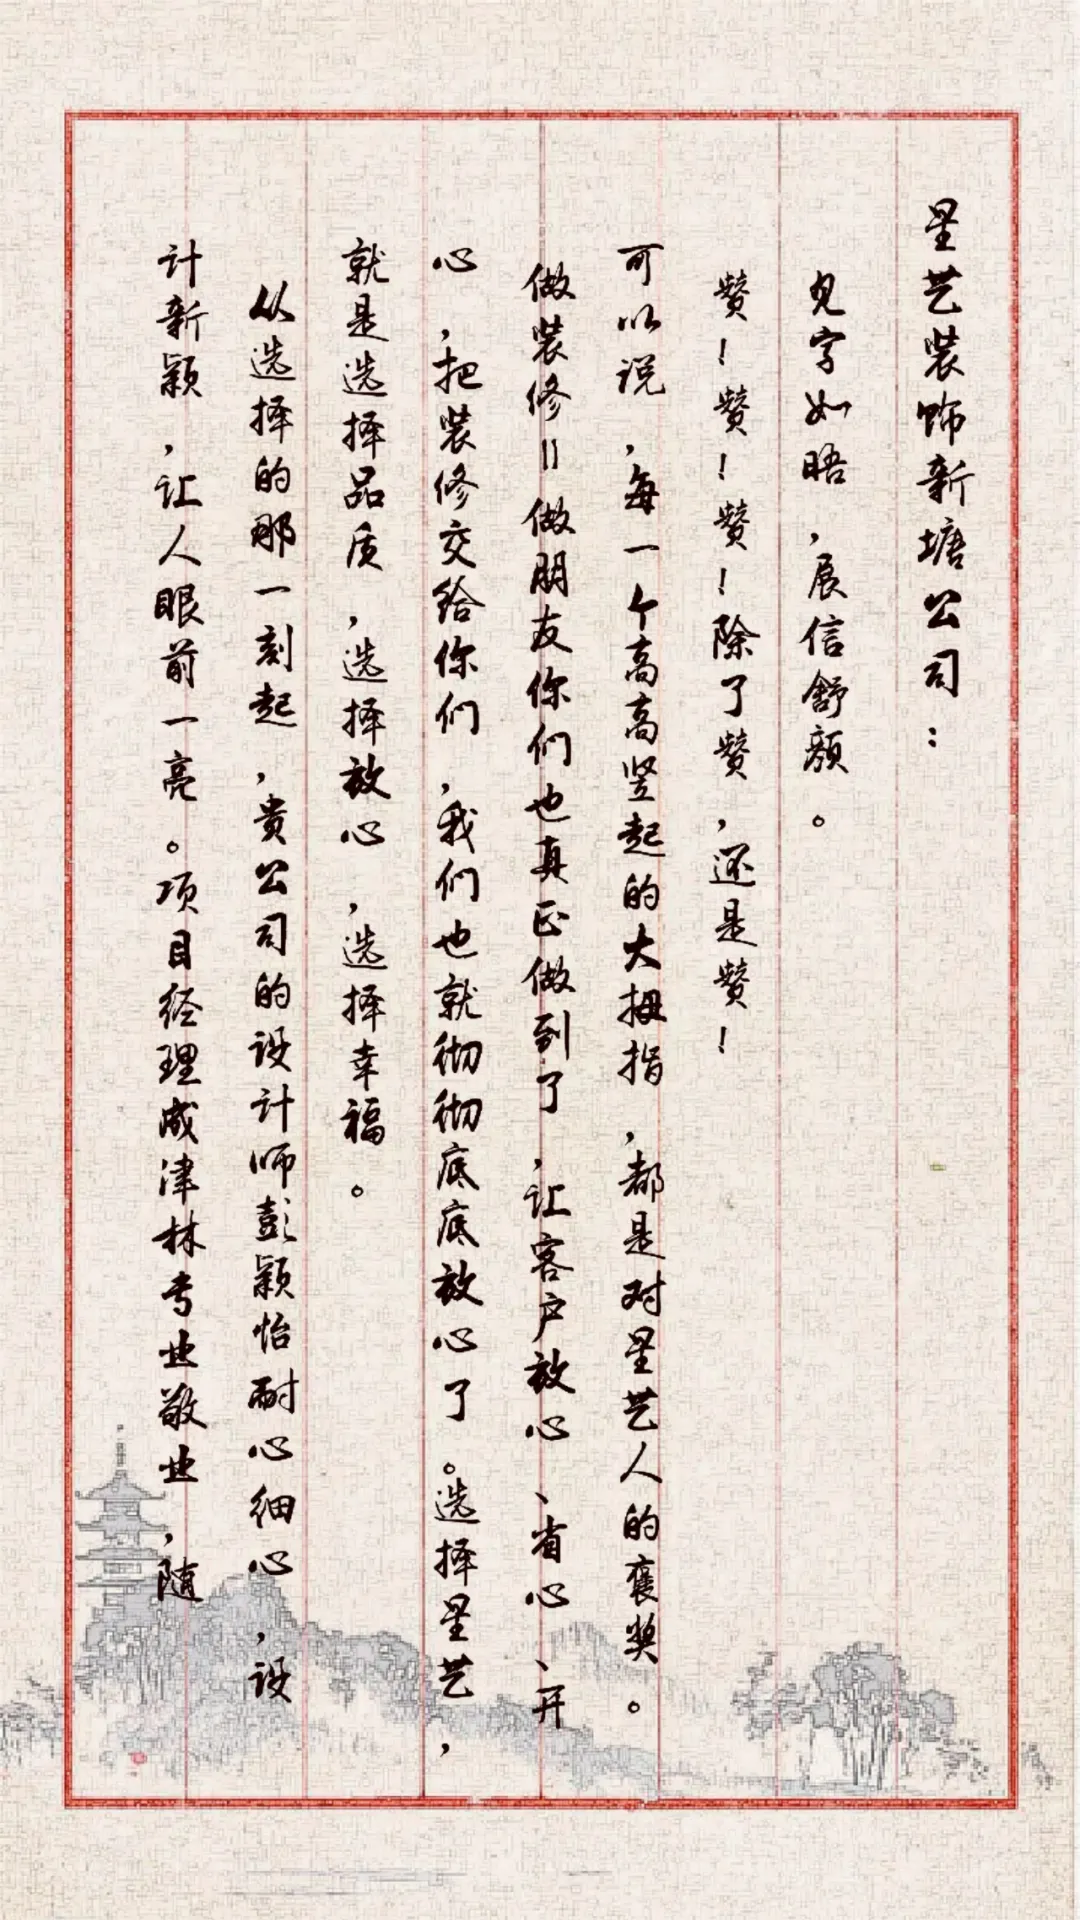 星艺装饰新塘公司：
见字如晤，展信舒颜。
赞！赞！赞！除了赞，还是赞！
可以说，每一个高高竖起的大拇指，都是对星艺人的褒奖。
做装修=做朋友你们也真正做到了，让客户放心、省心、开
心，把装修交给你们，我们也就彻彻底底放心了。选择星艺，
就是选择品质，选择放心，选择幸福。
从选择的那一刻起，贵公司的设计师彭颖怡耐心细心，设
计新颖，让人眼前一亮。项目经理成津林专业敬业，随